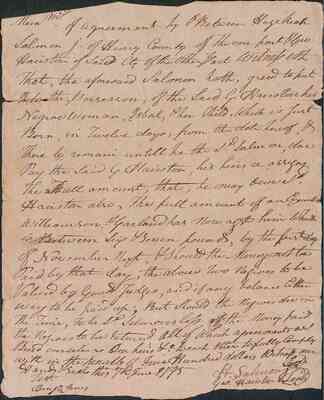 Mem
of agreement by & Between Hezekiah
Salmon J. of Henry County of the one part & Geo
Hairston of Said Cty of the Other Part Witnesseth
That, the aforesaid Salmon doth, agreed to put
Into the Possession, of the Said G Hairston her
Negroe woman, & her Child which is just
Born, in Twelve days, from the date hereof, &
There to remain until he the Sd Salmon, do
Pay the Said G Hairston, his heirs or assigns
The full amount, that, he may owe Sd
Hairston also, the full amount of an
Williamson & Garland has Now agst him which
is Between Six & Seven pounds, by the first day
of November Next & Should the Money not be
Paid by that day, the above two Negroes to be
Valued by Good Judges, and if any balance Either
way to be paid up, But should the Negroes die in
the time, to be Sd Salmons loss, & if the Money paid
the Negroes to be returned, All of which agreements we
Bind ourselves Our heirs & Each of them to fully Comply
with in the penalty of One Hundred dollars Witness our
hands & Seals this 7th June 1795
Test
Salmon
Geo Hairston